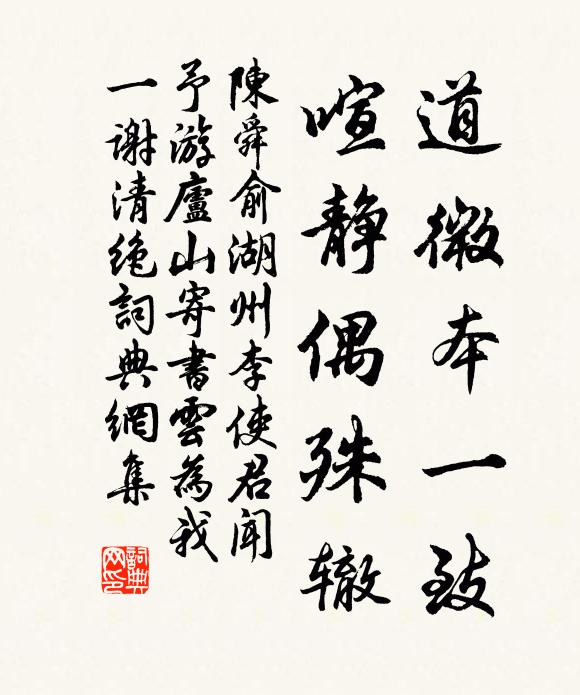 道微本一致
喧静偶殊辙
陳舜俞湖州李使君聞
予游廬山寄書雲為我
一谢清绝詞典網集
詞典网印